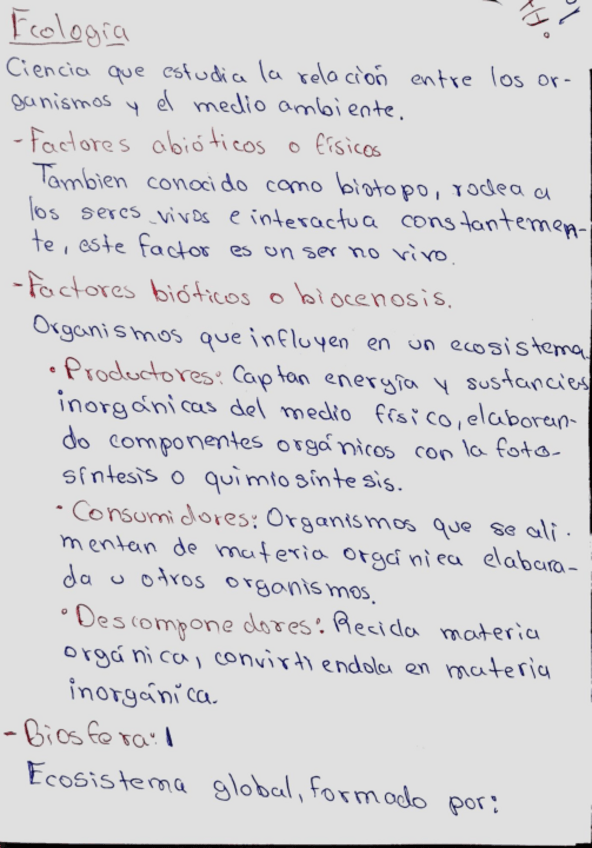 Ecología
Ciencia que estudia la relación entre los or-
ganismos y el medio ambiente.
- Factores abióticos o físicos
Tambien conocido como biotopo, rodea a
los seres vivos e interactua constantemen-
te, este factor es un ser no vivo.
- Factores bióticos o biocenosis.
Organismos que influyen en un ecosistema.
• Productores: Captan energía y sustancies
inorgánicas del medio físico, elaboran-
do componentes orgánicos con la foto-
síntesis o quimiosíntesis.
• Consumidores: Organismos que se ali-
mentan de materia orgánica elabara-
da u otros organismos.
• Descomponedores: Recicla materia
orgánica, convirtiendola en materia
inorgánica.
- Biosfera:
Ecosistema global, formado por: